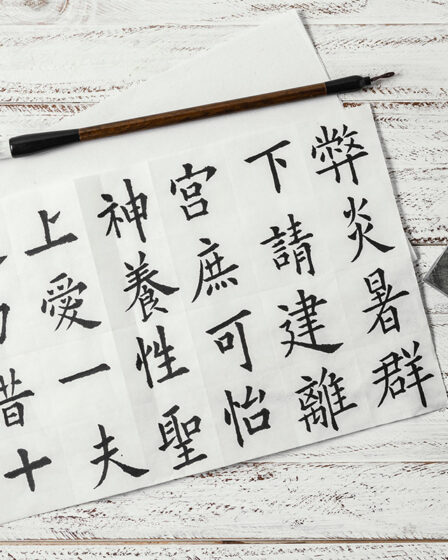 弊炎暑群
下請建離
宮庶可怡
神養性聖
上愛一夫
力惜十